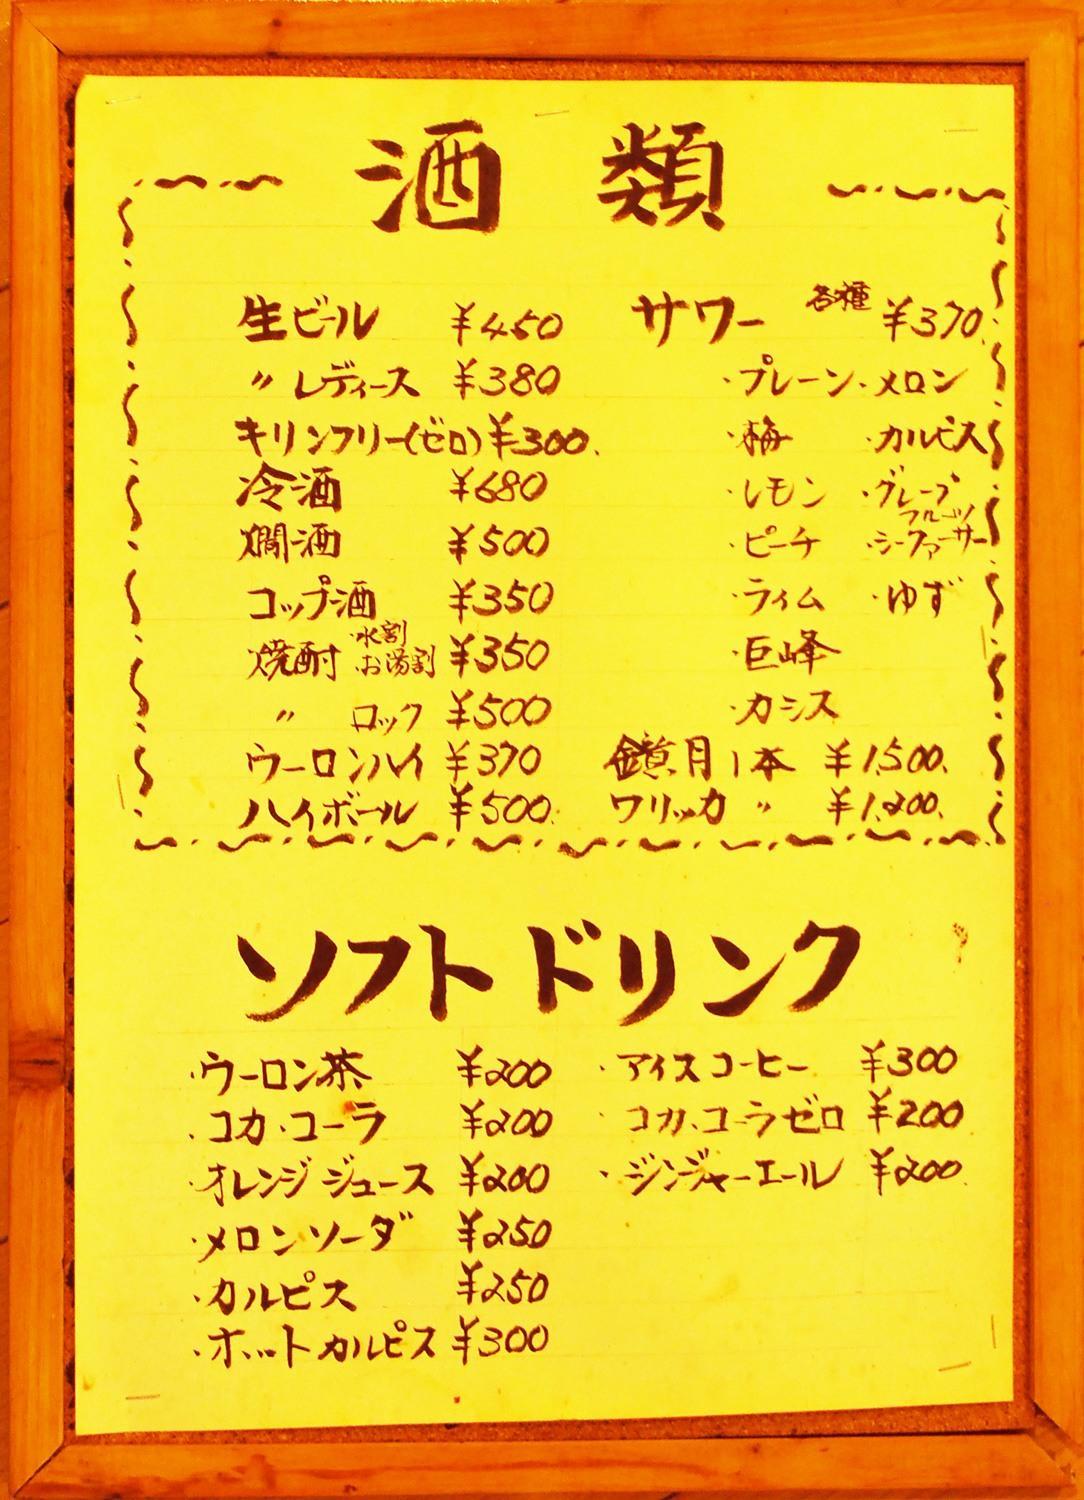 酒類
生ビール ¥450
〃 レディース ¥380
キリンフリー(ゼロ) ¥300.
冷酒 ¥680
燗酒 ¥500
コップ酒 ¥350
焼酎 ・水割 ・お湯割 ¥350
〃 ロック ¥500
ウーロンハイ ¥370
ハイボール ¥500.
サワー 各種 ¥370.
・プレーン ・メロン
・梅 ・カルピス
・レモン ・グレープフルーツ
・ピーチ ・シークァーサー
・ライム ・ゆず
・巨峰
・カシス
鏡月1本 ¥1,500.
ワリッカ 〃 ¥1,200.
ソフトドリンク
・ウーロン茶 ¥200
・コカ・コーラ ¥200
・オレンジジュース ¥200
・メロンソーダ ¥250
・カルピス ¥250
・ホットカルピス ¥300
・アイスコーヒー ¥300
・コカ・コーラゼロ ¥200
・ジンジャーエール ¥200.